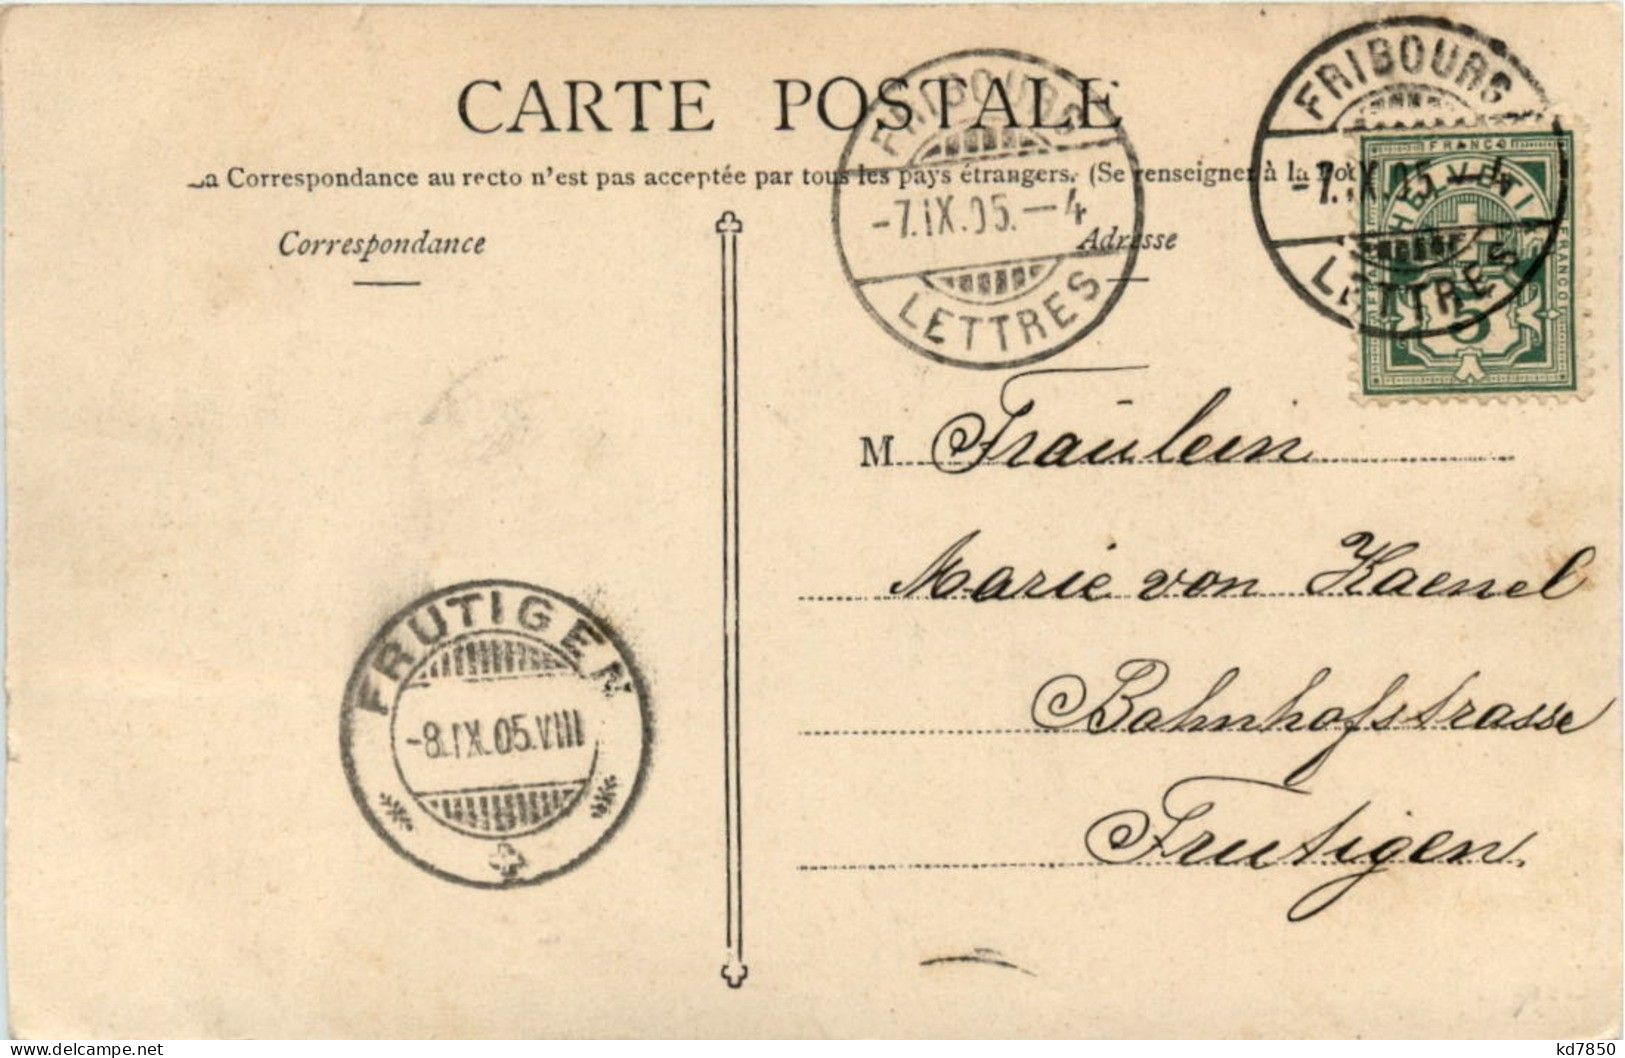 CARTE POSTALE
La Correspondance au recto n'est pas acceptée par tous les pays étrangers. (Se renseigner à la
Correspondance
Adresse
FRIBOURG
-7.IX.05.-4
LETTRES
FRIBOURG
-7.IX.05.-4
LETTRES
FRANCO
HELVETIA
FRANCO
5
M Fräulein
Marie von Kaenel
Bahnhofstrasse
Frutigen.
FRUTIGEN
-8.IX.05.VIII
kd7850